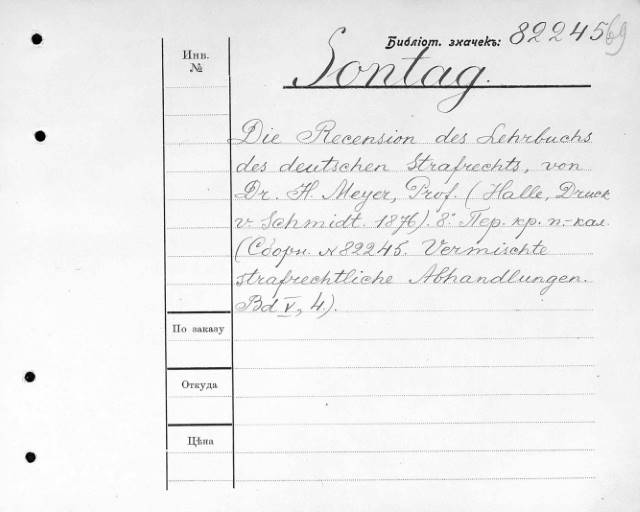 Библіот. значекъ: 82245 69
Инв. №
Sontag.
Die Recension des Lehrbuchs
des deutschen Strafrechts, von
Dr. H. Meyer, Prof. (Halle, Druck
v. Schmidt. 1876). 8º. Пер. кр. п.-кал.
(Сборн. № 82245. Vermischte
strafrechtliche Abhandlungen.
Bd V, 4.).
По заказу
Откуда
Цѣна